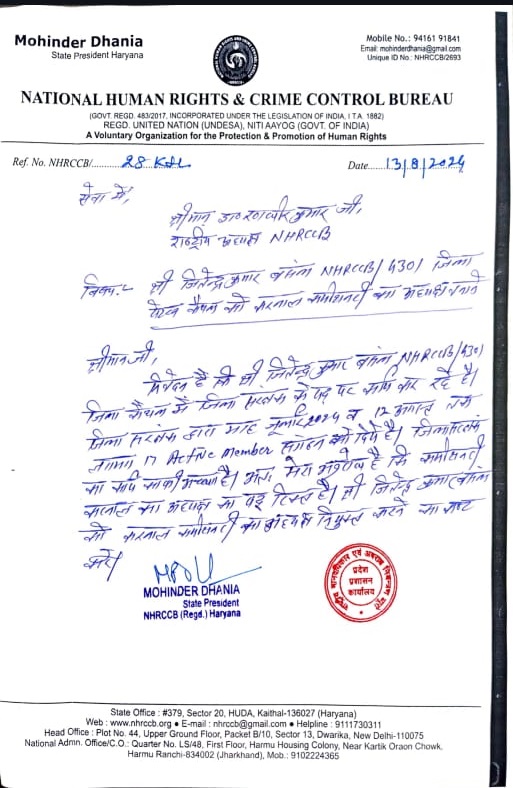 Mohinder Dhania
State President Haryana
Mobile No.: 94161 91841
Email: mohinderdhania@gmail.com
Unique ID No.: NHRCCB/2693
NATIONAL HUMAN RIGHTS & CRIME CONTROL BUREAU
(GOVT. REGD. 483/2017, INCORPORATED UNDER THE LEGISLATION OF INDIA, I T.A. 1882)
REGD. UNITED NATION (UNDESA), NITI AAYOG (GOVT. OF INDIA)
A Voluntary Organization for the Protection & Promotion of Human Rights
Ref. No. NHRCCB/..........28 KHL
Date......13/8/2024
सेवा में,
श्रीमान डा० रणधीर कुमार जी,
राष्ट्रीय अध्यक्ष NHRCCB
विषय:- श्री जितेन्द्र कुमार NHRCCB/4301 जिला
कैथल को करनाल का अध्यक्ष बनाने
श्रीमान जी,
निवेदन है कि श्री जितेन्द्र कुमार NHRCCB/4301
जिला कैथल में जिला संरक्षक के पद पर कार्य कर रहे है।
जिला संरक्षक द्वारा माह जुलाई 2024 व 12 अगस्त तक
लगभग 17 Active Member संगठन को दिये है।
का कार्य काफी अच्छा है। अतः मेरा है कि
करनाल का अध्यक्ष का पद रिक्त है। श्री जितेन्द्र कुमार
को करनाल का अध्यक्ष नियुक्त करने का कष्ट
करे।
MOHINDER DHANIA
State President
NHRCCB (Regd.) Haryana
राष्ट्रीय मानवाधिकार एवं अपराध नियंत्रण ब्यूरो
प्रदेश
प्रशासन
कार्यालय
State Office : #379, Sector 20, HUDA, Kaithal-136027 (Haryana)
Web : www.nhrccb.org ● E-mail : nhrccb@gmail.com ● Helpline : 9111730311
Head Office : Plot No. 44, Upper Ground Floor, Packet B/10, Sector 13, Dwarika, New Delhi-110075
National Admn. Office/C.O.: Quarter No. LS/48, First Floor, Harmu Housing Colony, Near Kartik Oraon Chowk.
Harmu Ranchi-834002 (Jharkhand), Mob.: 9102224365